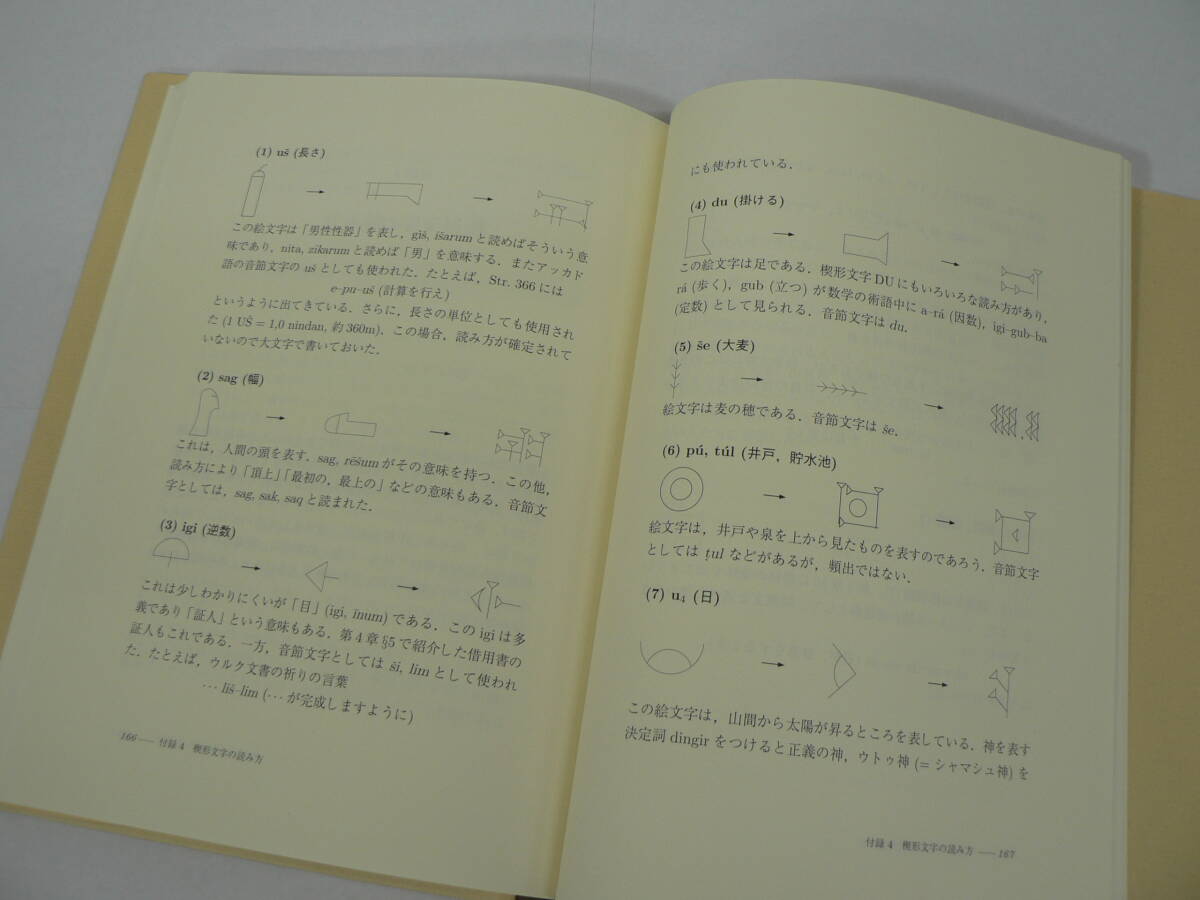 (1) uš (長さ)
この絵文字は「男性性器」を表し，gìš, išarum と読めばそういう意
味であり，nita, zikarum と読めば「男」を意味する．またアッカド
語の音節文字の uš としても使われた．たとえば，Str. 366 には
e–pu–uš (計算を行え)
というように出てきている．さらに，長さの単位としても使用され
た (1 UŠ = 1,0 nindan, 約 360m)．この場合，読み方が確定されて
いないので大文字で書いておいた．
(2) sag (幅)
これは，人間の頭を表す．sag, rēšum がその意味を持つ．この他，
読み方により「頂上」「最初の，最上の」などの意味もある．音節文
字としては，sag, sak, saq と読まれた．
(3) igi (逆数)
これは少しわかりにくいが「目」(igi, īnum) である．この igi は多
義であり「証人」という意味もある．第 4 章 §5 で紹介した借用書の
証人もこれである．一方，音節文字としては ši, lim として使われ
た．たとえば，ウルク文書の祈りの言葉
… liš–lim (… が完成しますように)
166 — 付録 4 楔形文字の読み方
にも使われている．
(4) du (掛ける)
この絵文字は足である．楔形文字 DU にもいろいろな読み方があり，
rá (歩く)，gub (立つ) が数学の術語中に a–rá (因数)，igi–gub–ba
(定数) として見られる．音節文字は du.
(5) še (大麦)
絵文字は麦の穂である．音節文字は še.
(6) pú, túl (井戸，貯水池)
絵文字は，井戸や泉を上から見たものを表すのであろう．音節文字
としては ṭul などがあるが，頻出ではない．
(7) u₄ (日)
この絵文字は，山間から太陽が昇るところを表している．神を表す
決定詞 dingir をつけると正義の神，ウトゥ神 (= シャマシュ神) を
付録 4 楔形文字の読み方 — 167